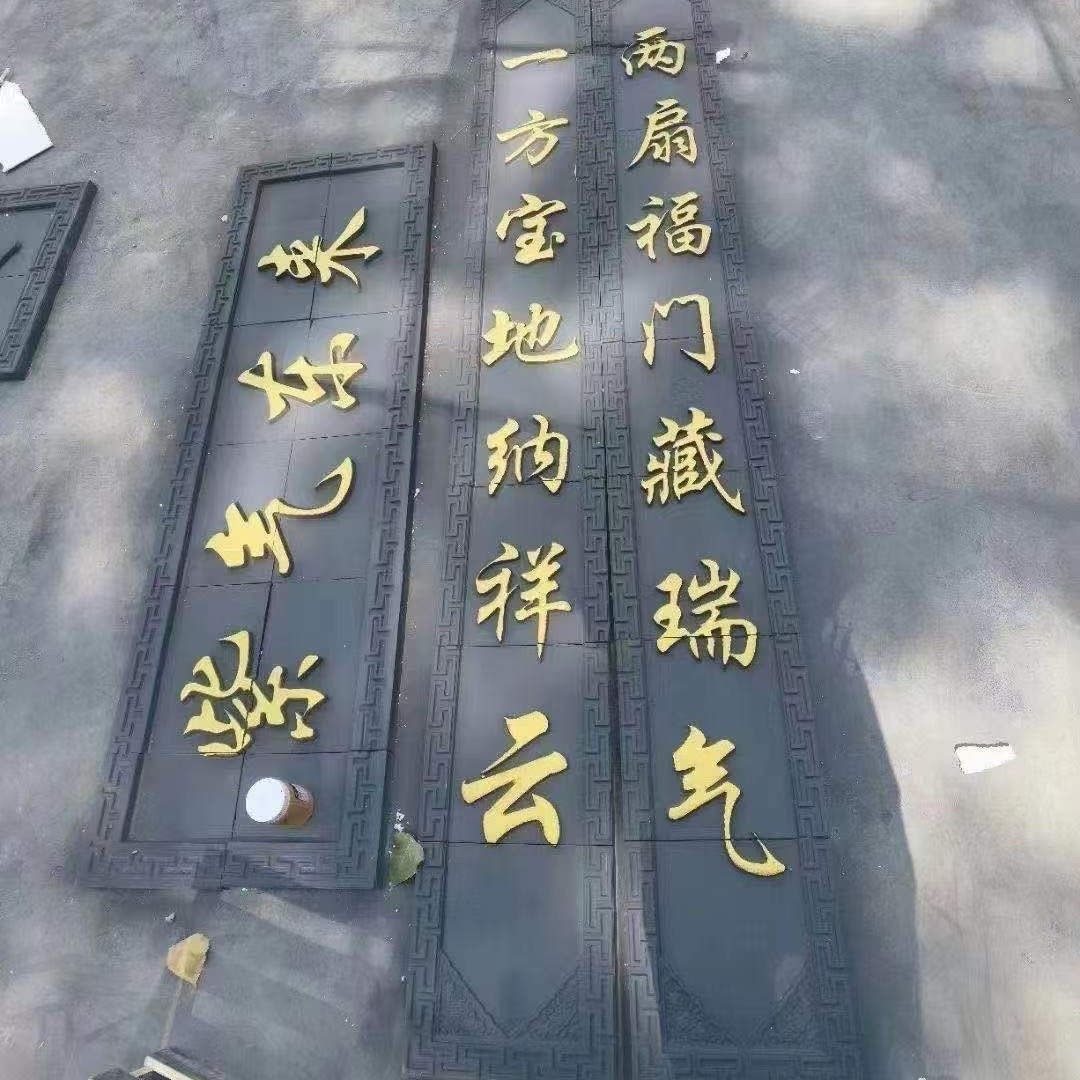 两扇福门藏瑞气
一方宝地纳祥云
紫气东来